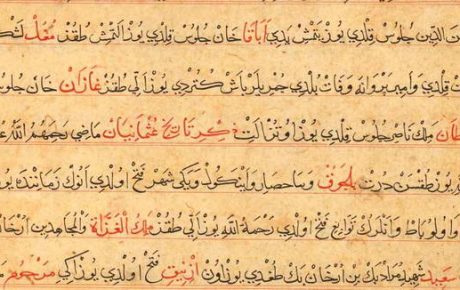 الدين جلوس قلدي يوز يتمش يدي آباقا خان جلوس قلدي يوز التمش طقز مغل
قلدي وامير پروانه وفات بلدي جمريلر باش كتردي يوز الي طقز غازان خان جلوس
ملك ناصر جلوس قلدي يوز اوتز ذكر تاريخ عثمانيان ماضي رحمهم الله
يوز طقسن درت بلجوق وما حصار واينكول ويكي شهر فتح اولدي انوك زماننده
واولوباط واتلرك توابع فتح اولدي رحمة الله يوز الي طقز ملك الغزاة والمجاهدين
سعيد شهيد مراد بك بن ارخان بك طغدي يوز اون ازنيق فتح اولدي يوز ايكي مرحوم